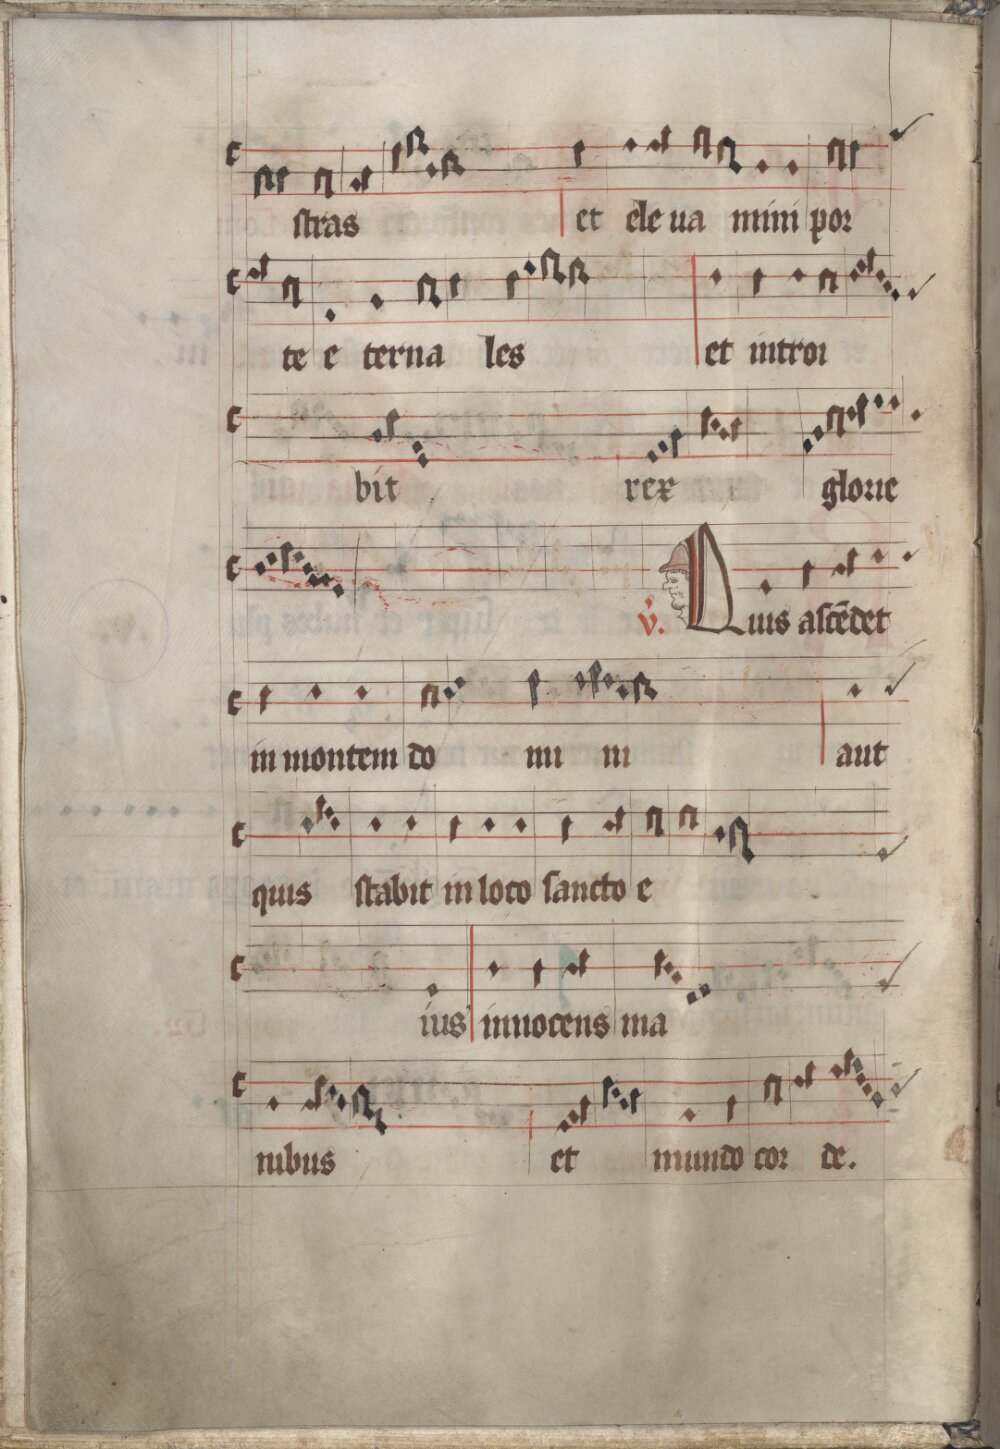 stras et ele ua mini por
te e terna les et introi
bit rex glorie
v. Quis ascēdet
in montem do mi ni aut
quis stabit in loco sancto e
ius innocens ma
nibus et mundo cor de.